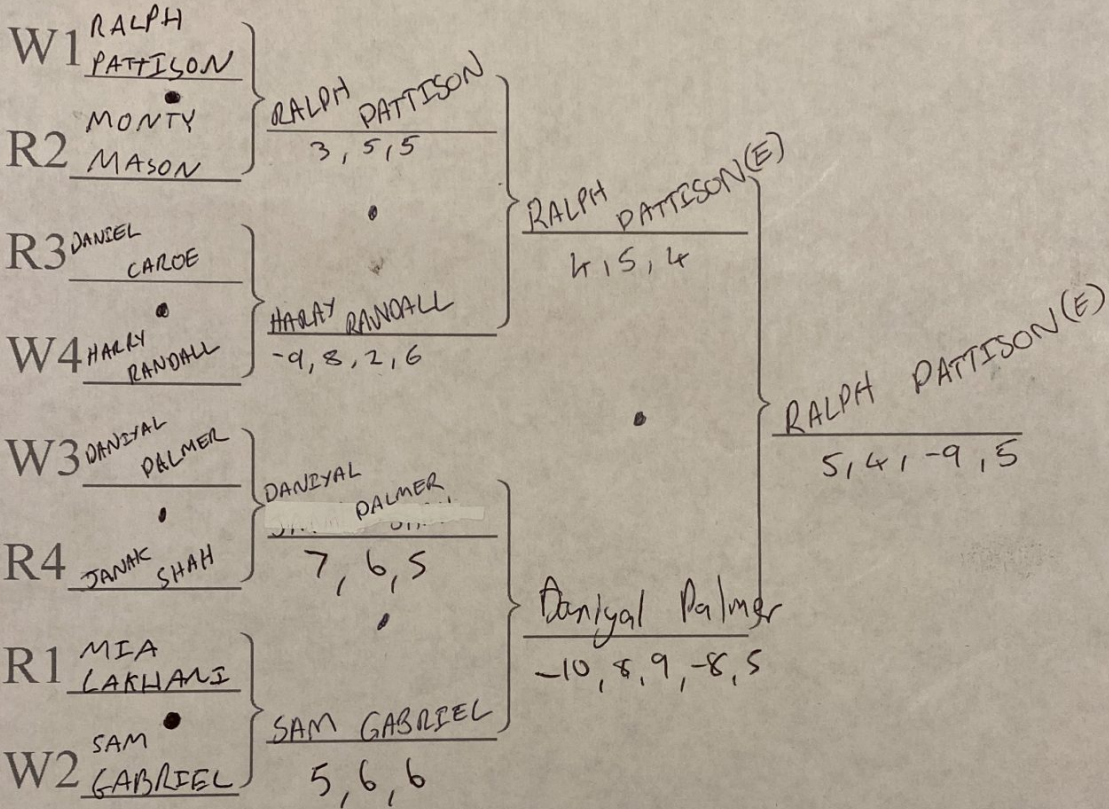 W1 RALPH
PATTISON
R2 MONTY
MASON
R3 DANIEL
CAROE
W4 HARRY
RANDALL
W3 DANIYAL
PALMER
R4 JANAK SHAH
R1 MIA
LAKHANI
W2 SAM
GABRIEL
RALPH PATTISON
3, 5, 5
HARRY RANDALL
-9, 8, 2, 6
DANIYAL
PALMER
7, 6, 5
SAM GABRIEL
5, 6, 6
RALPH PATTISON(E)
4, 5, 4
Daniyal Palmer
-10, 8, 9, -8, 5
RALPH PATTISON(E)
5, 4, -9, 5